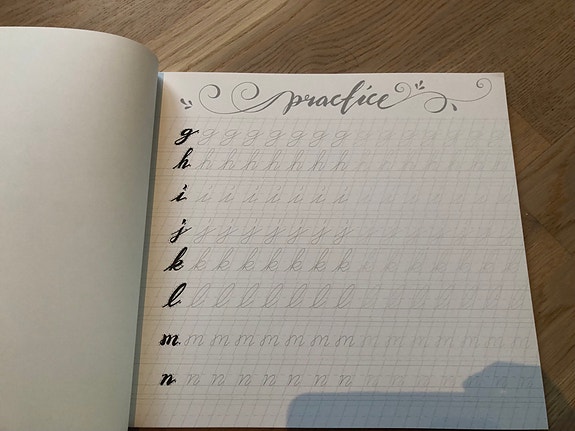 practice
g g g g g g g g
h h h h h h h h
i i i i i i i i
j j j j j j j j
k k k k k k k k
l l l l l l l l
m m m m m m m m
n n n n n n n n